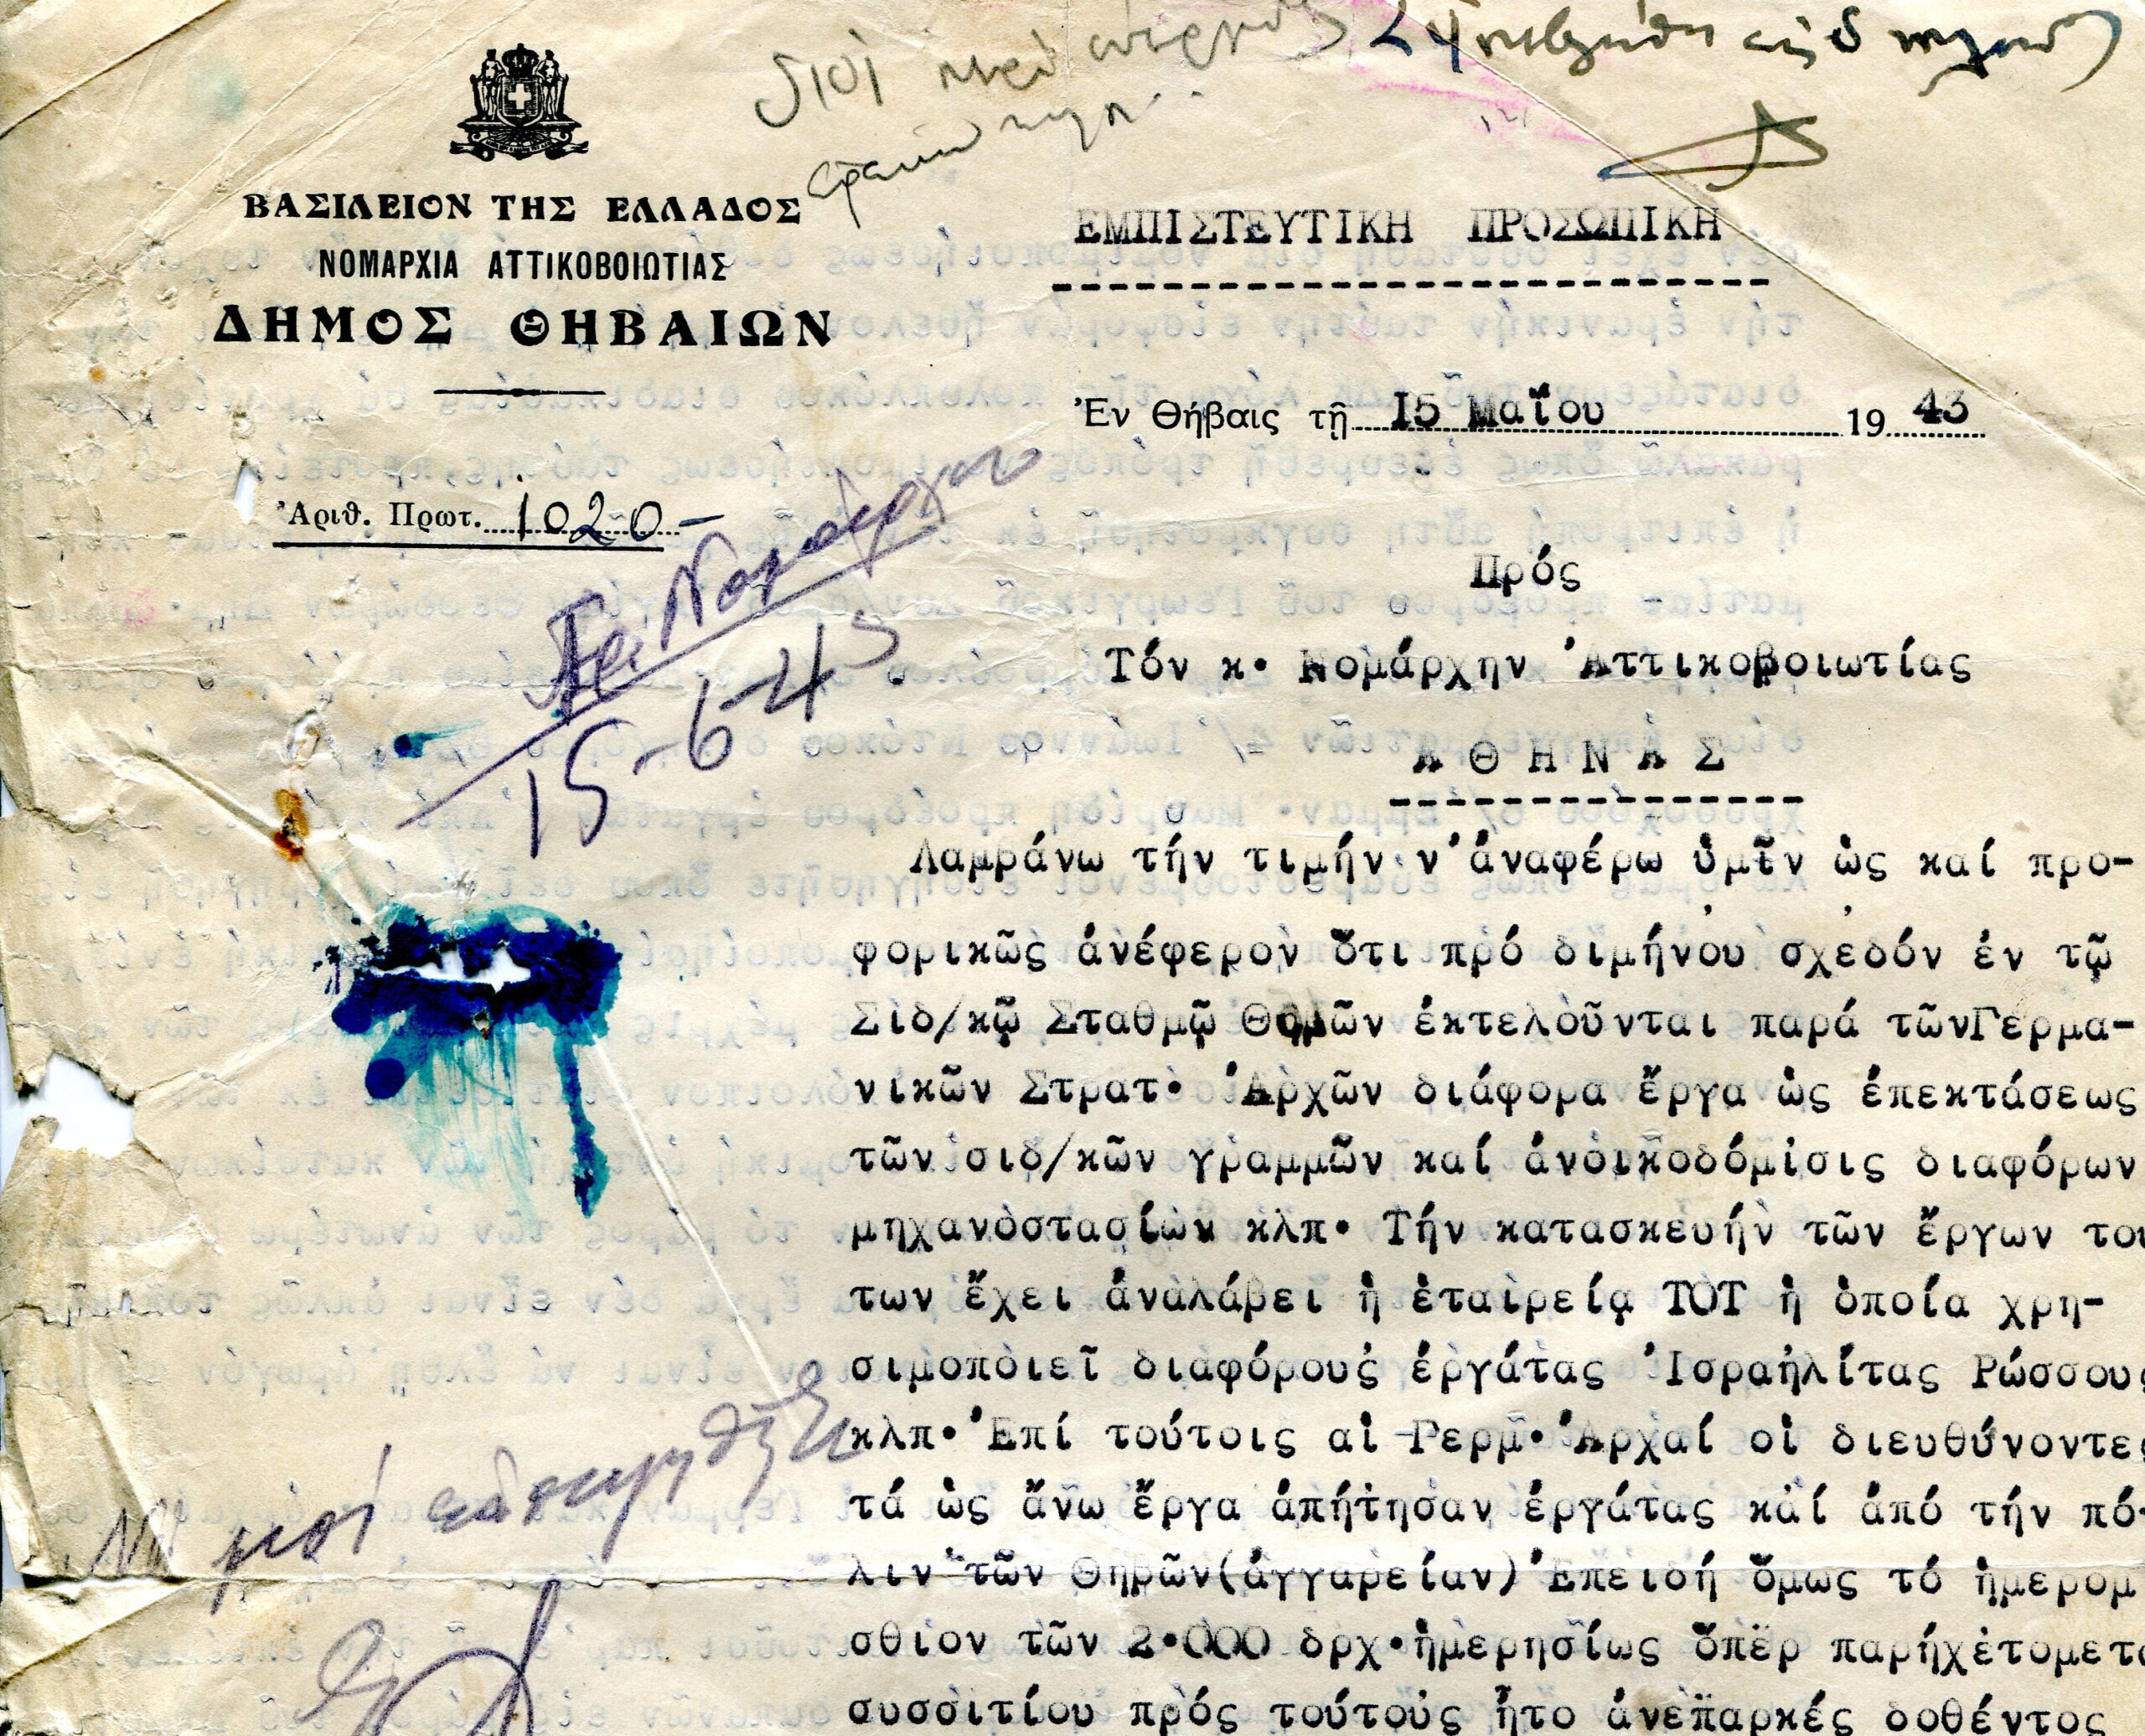 ΒΑΣΙΛΕΙΟΝ ΤΗΣ ΕΛΛΑΔΟΣ
ΝΟΜΑΡΧΙΑ ΑΤΤΙΚΟΒΟΙΩΤΙΑΣ
ΔΗΜΟΣ ΘΗΒΑΙΩΝ
Ἀριθ. Πρωτ. 1020-
15-6-43
ΕΜΠΙΣΤΕΥΤΙΚΗ ΠΡΟΣΩΠΙΚΗ
Ἐν Θήβαις τῇ 15 Μαΐου 1943
Πρός
Τόν κ. Νομάρχην Ἀττικοβοιωτίας
ΑΘΗΝΑΣ
Λαμβάνω τήν τιμήν ν'ἀναφέρω ὑμῖν ὡς καί προ-
φορικῶς ἀνέφερον ὅτι πρό διμήνου σχεδόν ἐν τῷ
Σιδ/κῷ Σταθμῷ Θηβῶν ἐκτελοῦνται παρά τῶνΓερμα-
νικῶν Στρατ. Ἀρχῶν διάφορα ἔργα ὡς ἐπεκτάσεως
τῶν σιδ/κῶν γραμμῶν καί ἀνοικοδόμισις διαφόρων
μηχανοστασίων κλπ. Τήν κατασκευήν τῶν ἔργων του
των ἔχει ἀναλάβει ἡ ἑταιρεία ΤΟΤ ἡ ὁποία χρη-
σιμοποιεῖ διαφόρους ἐργάτας Ἰσραηλίτας Ρώσσους
κλπ. Ἐπί τούτοις αἱ Γερμ. Ἀρχαί οἱ διευθύνοντες
τά ὡς ἄνω ἔργα ἀπήτησαν ἐργάτας καί ἀπό τήν πό-
λιν τῶν Θηβῶν(ἀγγαρείαν) Ἐπειδή ὅμως τό ἡμερομί
σθιον τῶν 2.000 δρχ.ἡμερησίως ὅπερ παρήχετομετά
συσσιτίου πρός τούτους ἦτο ἀνεπαρκές δοθέντος